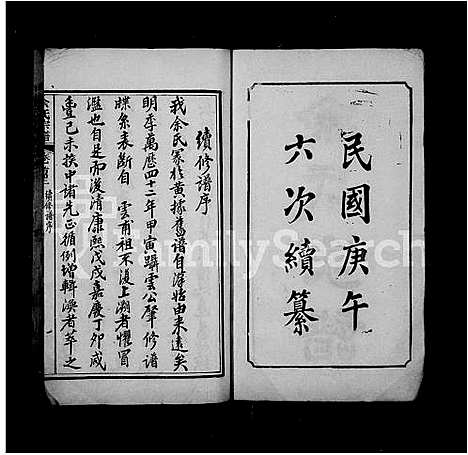 民國庚午
六次續纂
續修譜序
我余氏家於黄據舊譜自潯始由来遠矣
明季萬曆四十二年甲寅躋雲公肇修譜
牒糸表斷自 雲甫祖不復上溯者懼冒
濫也自是而後清康熙戊戌嘉慶丁卯咸
豐己未挨申諸先正循例增輯渙者萃之
余氏宗譜
續修譜序
FamilySearch